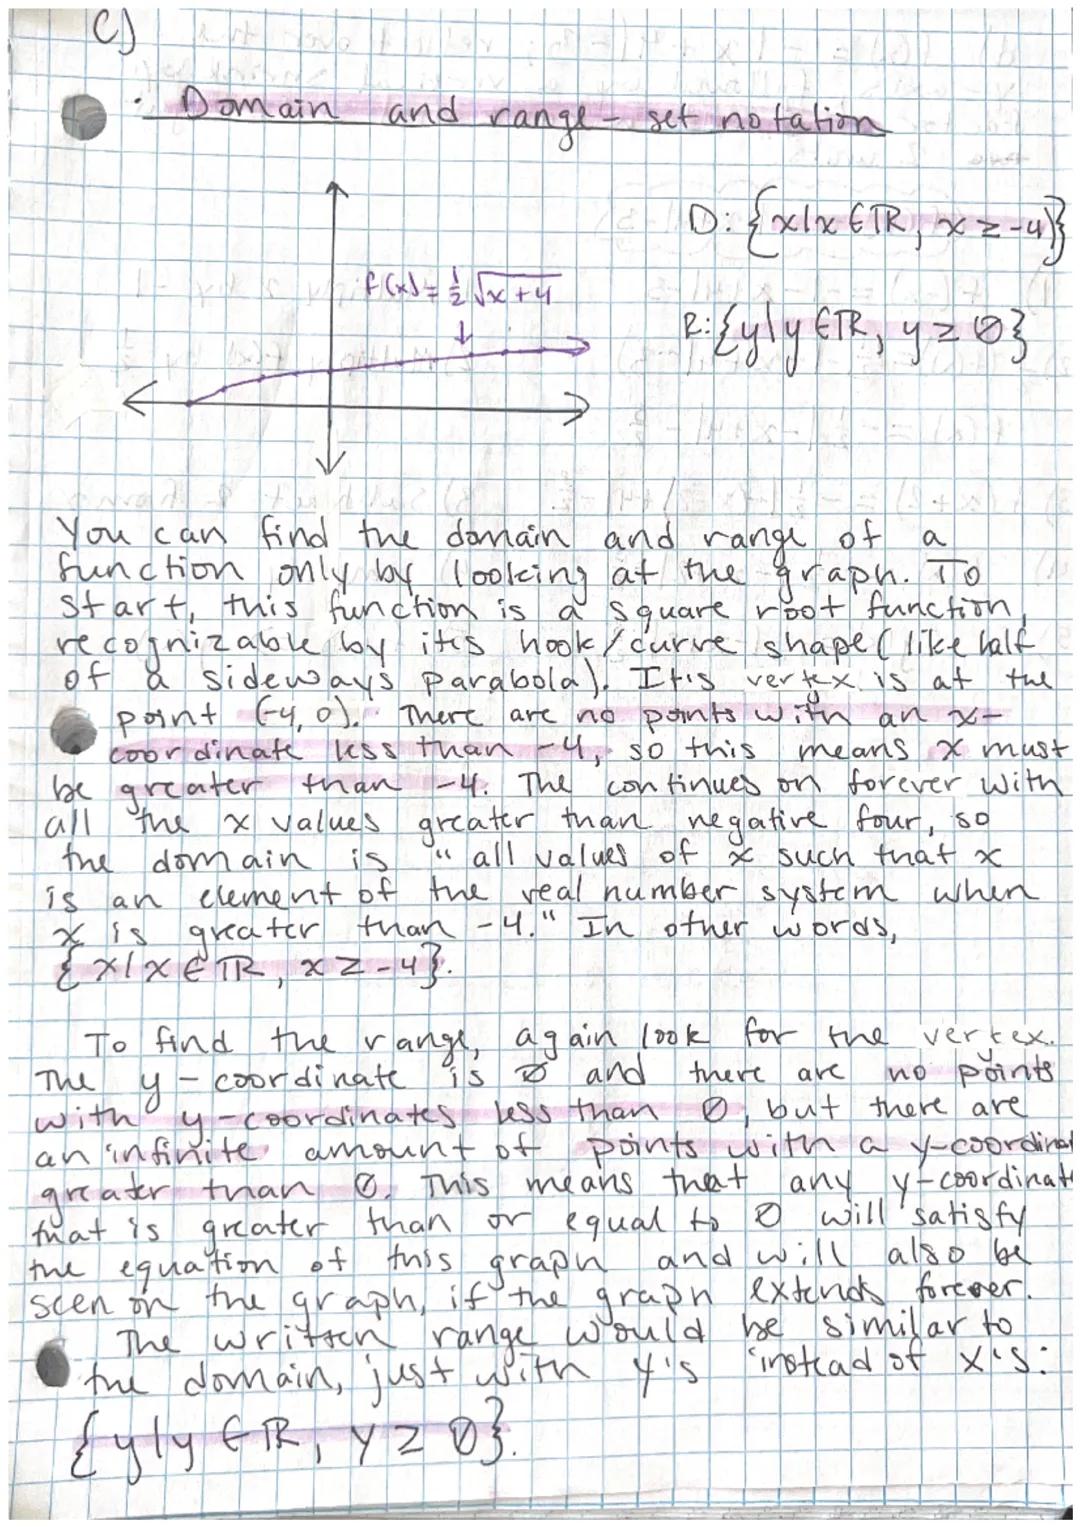 c)
· Domain and range - set notation
D: {x|x ∈ ℝ, x ≥ -4}
f(x) = 1/2 √x+4
R: {y|y ∈ ℝ, y ≥ 0}
You can find the domain and range of a
function only by looking at the graph. To
start, this function is a square root function,
recognizable by it's hook/curve shape (like half
of a sideways parabola). It's vertex is at the
point (-4, 0). There are no points with an x-
coordinate less than -4, so this means x must
be greater than -4. The continues on forever with
all the x values greater than negative four, so
the domain is "all values of x such that x
is an element of the real number system when
x is greater than -4." In other words,
{x|x ∈ ℝ, x ≥ -4}.
To find the range, again look for the vertex.
The y-coordinate is 0 and there are no points
with y-coordinates less than 0, but there are
an infinite amount of points with a y-coordinat
greater than 0. This means that any y-coordinate
that is greater than or equal to 0 will satisfy
the equation of this graph and will also be
seen on the graph, if the graph extends forever.
The written range would be similar to
the domain, just with y's instead of x's:
{y|y ∈ ℝ, y ≥ 0}.